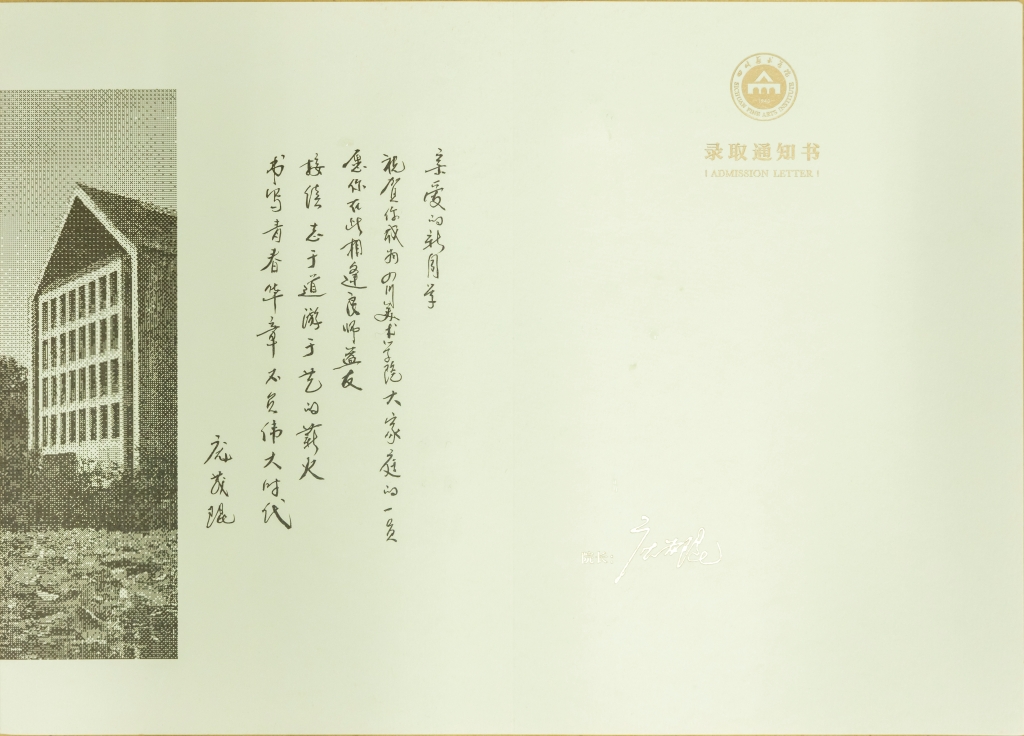 四川美术学院
SICHUAN FINE ARTS INSTITUTE
1940
录取通知书
ADMISSION LETTER
亲爱的新同学
祝贺你成为四川美术学院大家庭的一员
愿你在此相逢良师益友
接续志于道游于艺的薪火
书写青春华章不负伟大时代
庞茂琨
院长:
庞茂琨